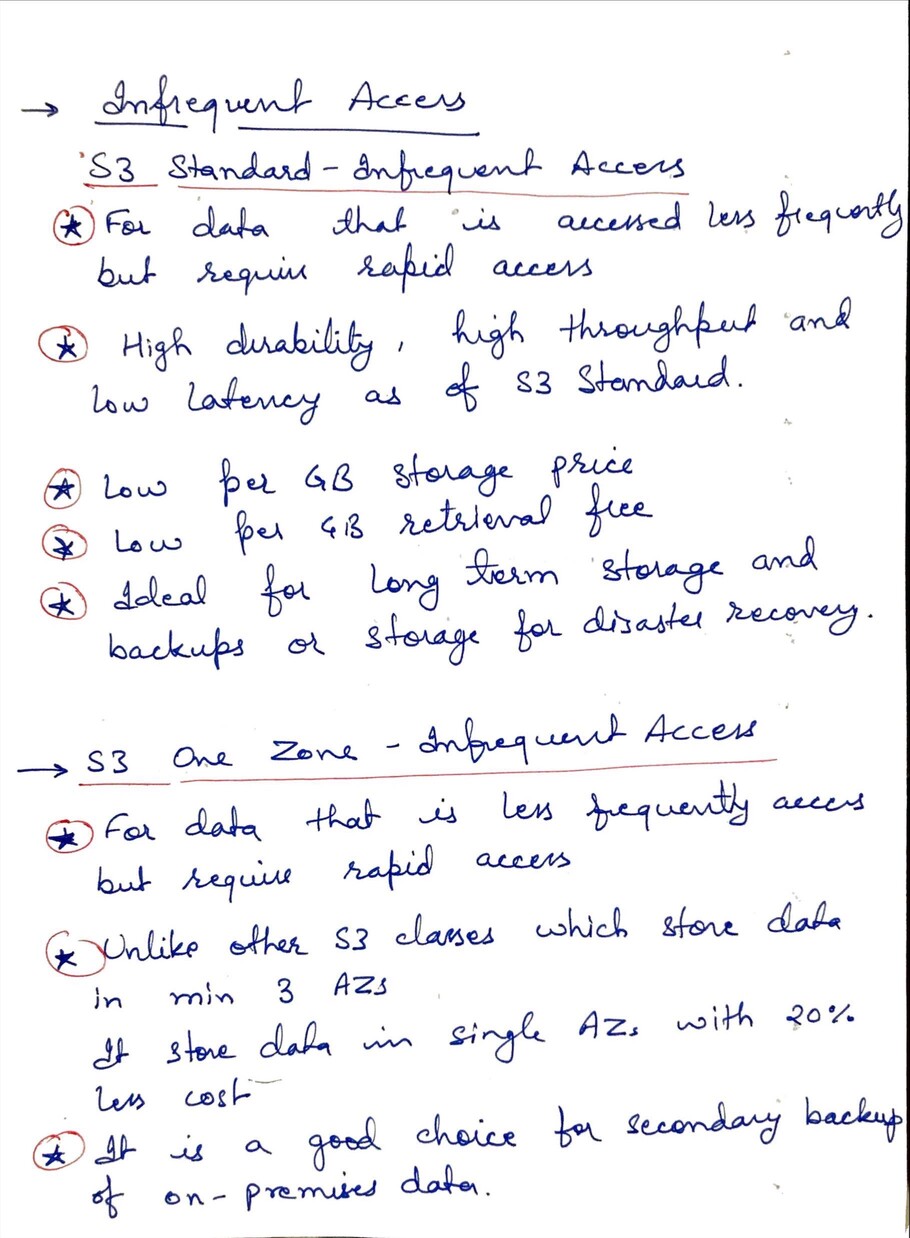 → Infrequent Access
S3 Standard - Infrequent Access
★ For data that is accessed less frequently
but require rapid access
★ High durability, high throughput and
low latency as of S3 Standard.
★ Low per GB storage price
★ Low per GB retrieval free
★ Ideal for long term storage and
backups or storage for disaster recovery.
→ S3 One Zone - Infrequent Access
★ For data that is less frequently access
but require rapid access
★ Unlike other S3 classes which store data
in min 3 AZs
It store data in single AZs with 20%
less cost
★ It is a good choice for secondary backup
of on-premises data.